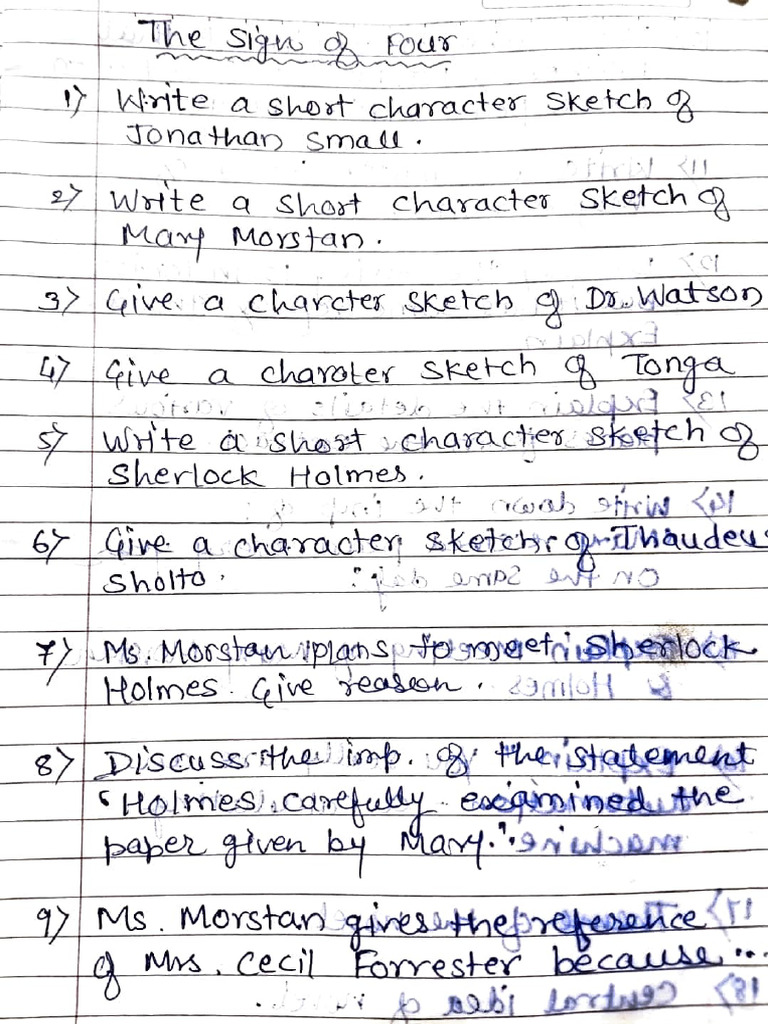 The Sign of Four
1) Write a short character sketch of
Jonathan Small.
2) Write a short character sketch of
Mary Morstan.
3) Give a charcter sketch of Dr. Watson
4) Give a charcter sketch of Tonga
5) Write a short character sketch of
Sherlock Holmes.
6) Give a character sketch of Thaudeus
Sholto.
7) Ms. Morstan plans to meet Sherlock
Holmes. Give reason.
8) Discuss the imp. of the statement
"Holmes carefully examined the
paper given by Mary."
9) Ms. Morstan gives the reference
of Mrs. Cecil Forrester because...